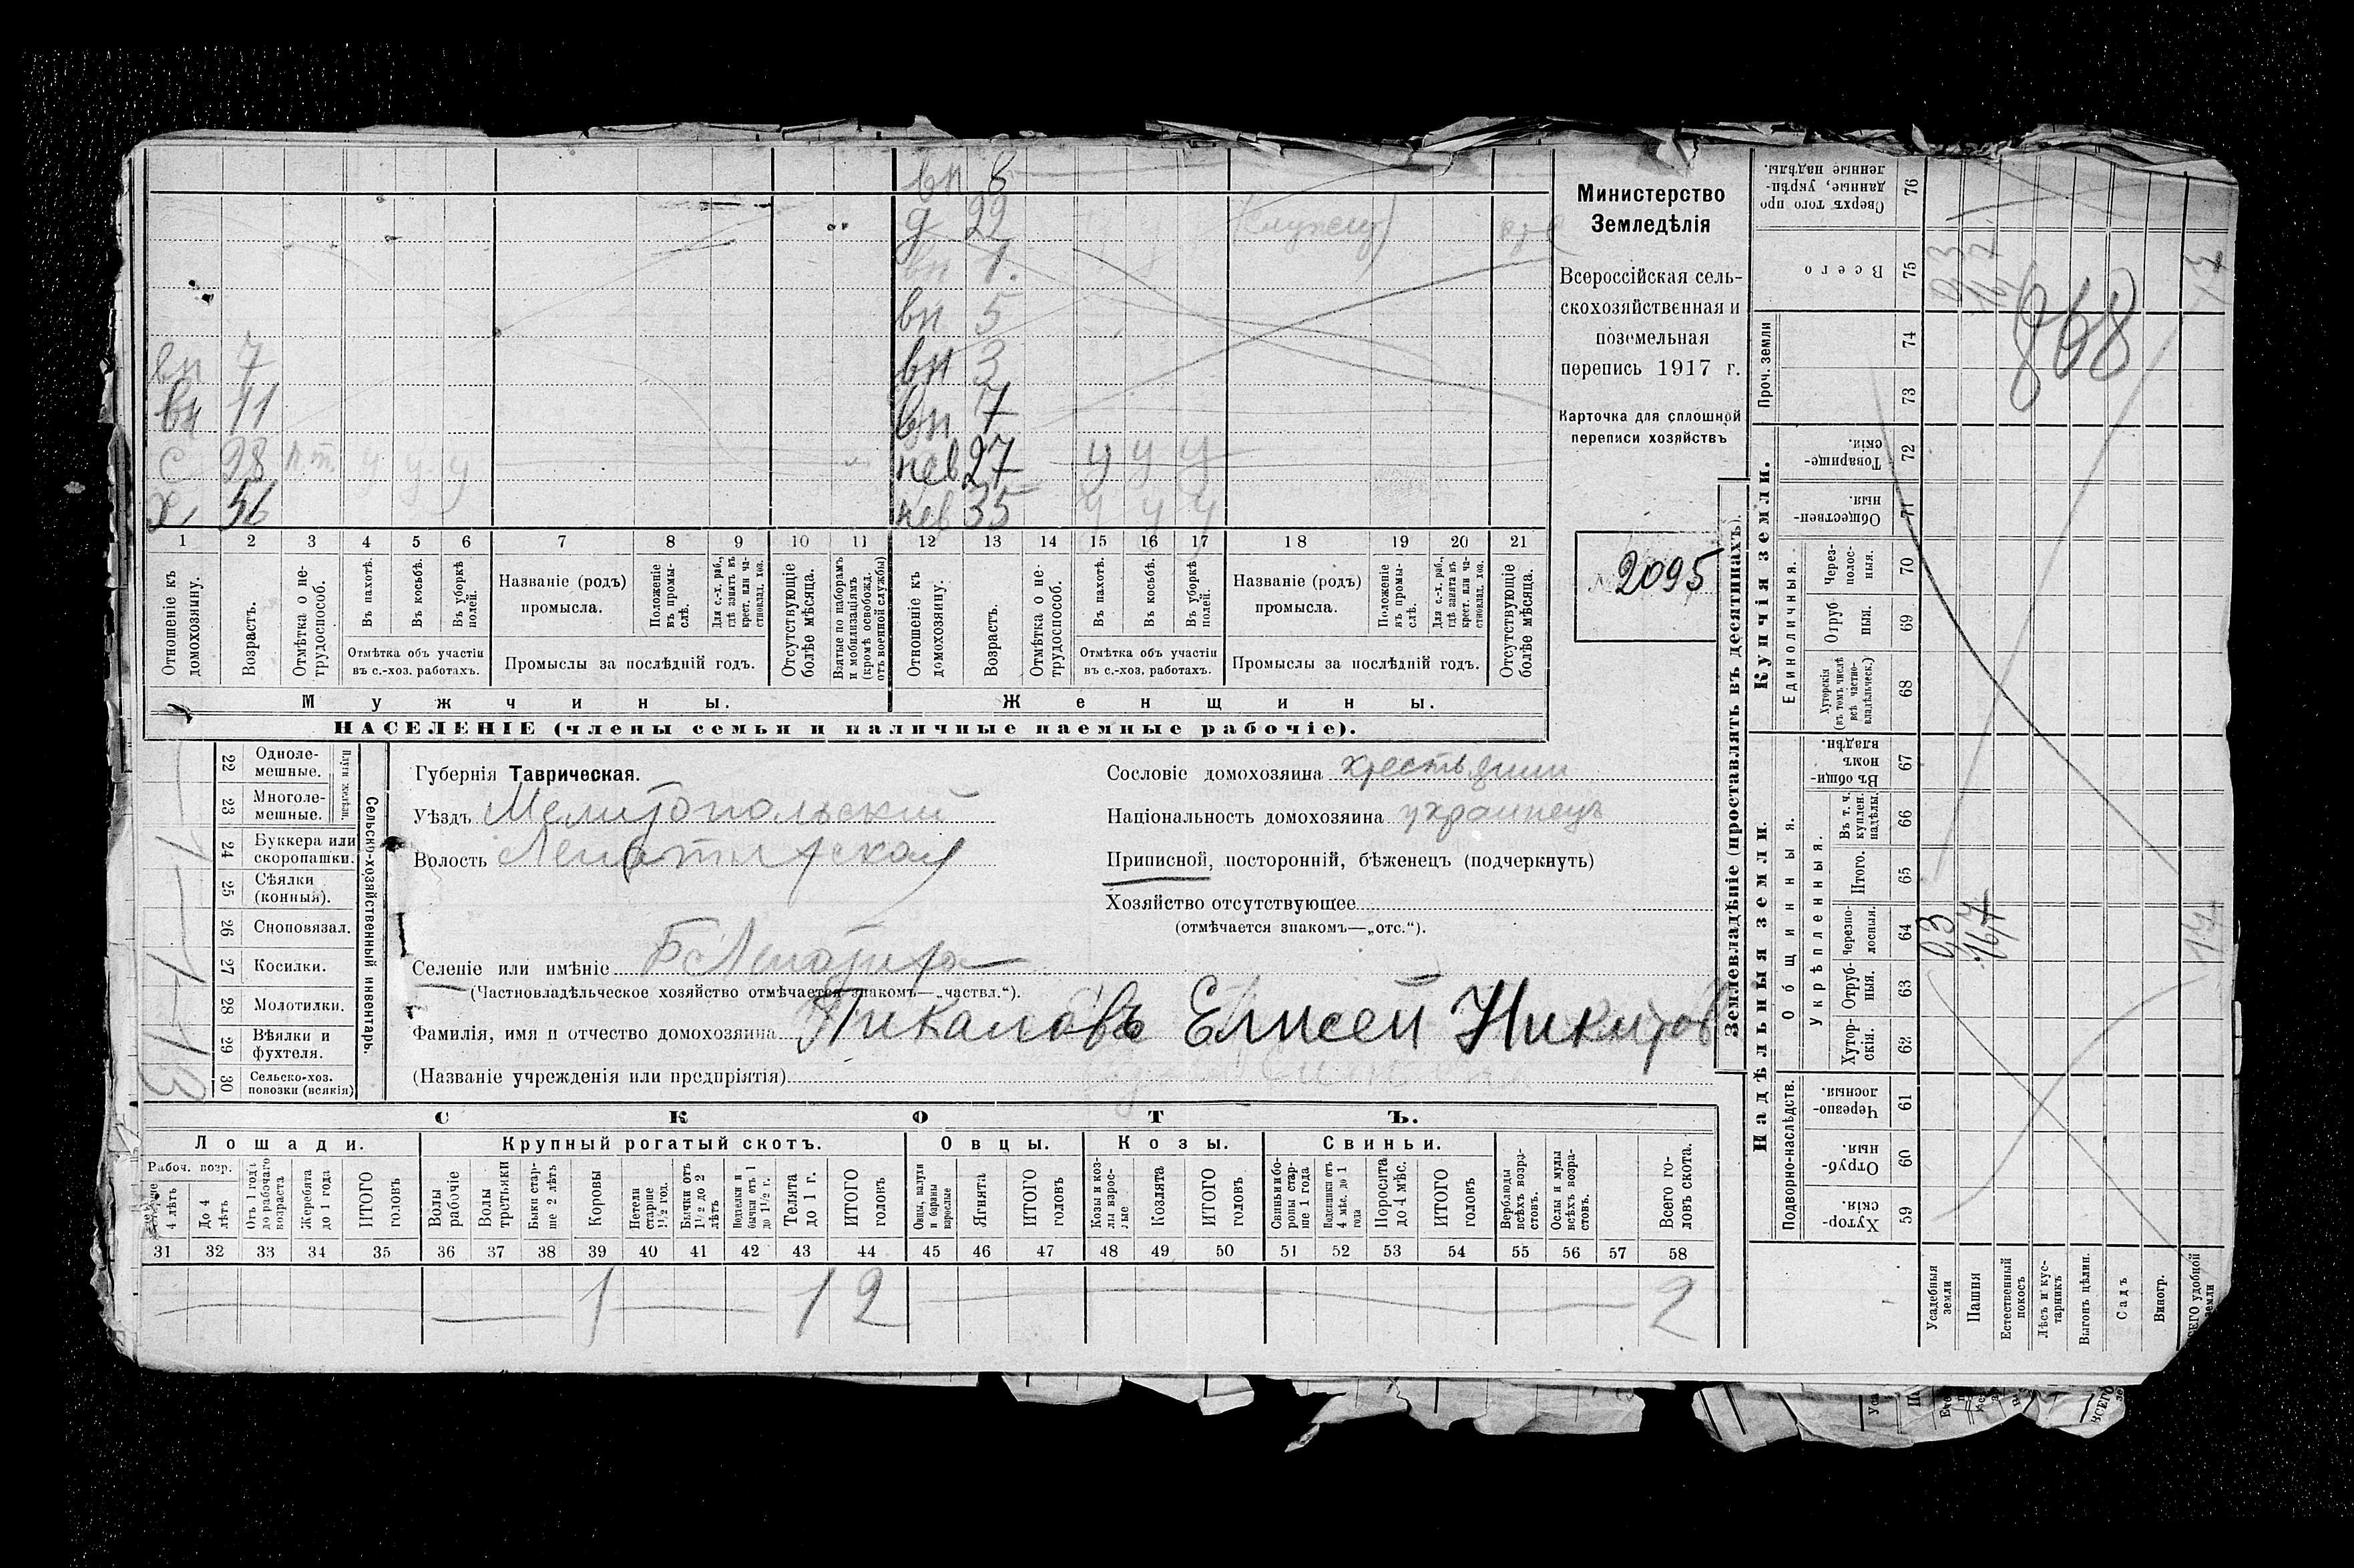 вн 8
д 22
вн 1.
вн 5
вн 7 вн 3
вн 11 вн 7
с 28 у у у нев 27 у у у
х 56 нев 35 у у у
1 2 3 4 5 6 7 8 9 10 11 12 13 14 15 16 17 18 19 20 21
Отношеніе къ домохозяину.
Возрастъ.
Отмѣтка о нетрудоспособ.
Въ пахотѣ.
Въ косьбѣ.
Въ уборкѣ полей.
Отмѣтка объ участіи въ с.-хоз. работахъ.
Названіе (родъ) промысла.
Положеніе въ промыслѣ.
Для с.-х. раб., гдѣ занятъ въ крест. или частновлад. хоз.
Промыслы за послѣдній годъ.
Отсутствующіе болѣе мѣсяца.
Взятые по наборамъ и мобилизаціямъ (кромѣ освобожд. отъ военной службы)
Отношеніе къ домохозяину.
Возрастъ.
Отмѣтка о нетрудоспособ.
Въ пахотѣ.
Въ косьбѣ.
Въ уборкѣ полей.
Отмѣтка объ участіи въ с.-хоз. работахъ.
Названіе (родъ) промысла.
Положеніе въ промыслѣ.
Для с.-х. раб., гдѣ занята въ крест. или частновлад. хоз.
Промыслы за послѣдній годъ.
Отсутствующіе болѣе мѣсяца.
Мужчины. Женщины.
НАСЕЛЕНІЕ (члены семьи и наличные наемные рабочіе).
Министерство
Земледѣлія
Всероссійская сель-
скохозяйственная и
поземельная
перепись 1917 г.
Карточка для сплошной
переписи хозяйствъ
№ 2095
Сельско-хозяйственный инвентарь.
Плуги желѣзн.
22 Одноле-
мешные.
23 Многоле-
мешные.
24 Буккера или
скоропашки.
25 Сѣялки
(конныя).
26 Сноповязал.
27 Косилки.
28 Молотилки.
29 Вѣялки и
фухтеля.
30 Сельско-хоз.
повозки (всякія)
Губернія Таврическая.
Уѣздъ Мелитопольскій
Волость Лепатихская
Селеніе или имѣніе Б Лепатиха
(Частновладѣльческое хозяйство отмѣчается знакомъ—„частвл.“).
Фамилія, имя и отчество домохозяина Пикаловъ Елисей Никитов
(Названіе учрежденія или предпріятія)
Сословіе домохозяина
Національность домохозяина украинецъ
Приписной, посторонній, бѣженецъ (подчеркнуть)
Хозяйство отсутствующее
(отмѣчается знакомъ—„отс.“).
СКОТЪ.
Лошади. Крупный рогатый скотъ. Овцы. Козы. Свиньи.
Рабоч. возр.
4 лѣтъ
До 4 лѣтъ
Отъ 1 года до рабочаго возраста
Жеребята до 1 года
ИТОГО головъ
Волы рабочіе
Волы третьяки
Быки старше 2 лѣтъ
Коровы
Нетели старше 1½ год.
Бычки отъ 1½ до 2 лѣтъ
Подтелки и бычки отъ 1 до 1½ г.
Телята до 1 г.
ИТОГО головъ
Овцы, валухи и бараны взрослые
Ягнята
ИТОГО головъ
Козы и козлы взрослые
Козлята
ИТОГО головъ
Свиньи боровы старше 1 года
Подсвинки отъ 4 мѣс. до 1 года
Поросята до 4 мѣс.
ИТОГО головъ
Верблюды всѣхъ возрастовъ.
Ослы и мулы всѣхъ возрастовъ.
Всего головъ скота.
31 32 33 34 35 36 37 38 39 40 41 42 43 44 45 46 47 48 49 50 51 52 53 54 55 56 57 58
1 1 2 2
Землевладѣніе (проставлять въ десятинахъ).
Купчія земли.
Надѣльныя земли.
Сверхъ того проданные, укрѣпленные надѣлы. 76
Всего 75
Проч. земли 74 73
Товарищескія. 72
Общественныя. 71
Единоличныя.
Черезполосныя. 70
Отрубныя. 69
Хуторскія (въ томъ числѣ всѣ частновладѣльческ.) 68
Общинныя.
Въ общин. владѣн. 67
Укрѣпленныя.
Въ т. ч. куплен. надѣлы. 66
Итого. 65
Черезполосныя. 64
Отрубныя. 63
Хуторскія. 62
Подворно-наслѣдств.
Черезполосныя. 61
Отрубныя. 60
Хуторскія. 59
Усадебныя земли
Пашня
Естественный покосъ
Лѣсъ и кустарникъ
Выгонъ цѣлин.
Садъ
Виногр.
ВСЕГО удобной земли
0,3 16,7 17
0,3 16,7 17
868